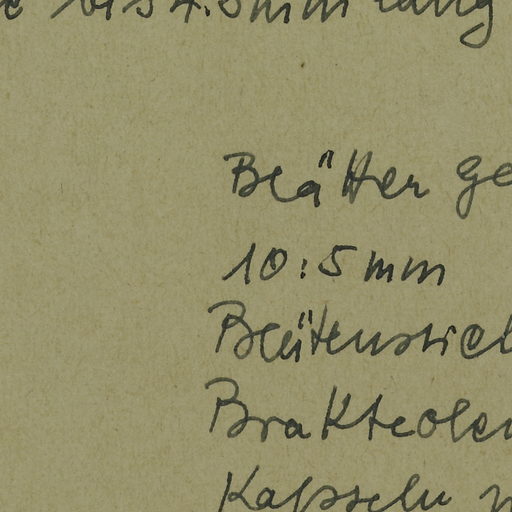 bis 4.5mm lang
Blätter ge
10:5mm
Blütenstiel
Brakteolen
Kapseln